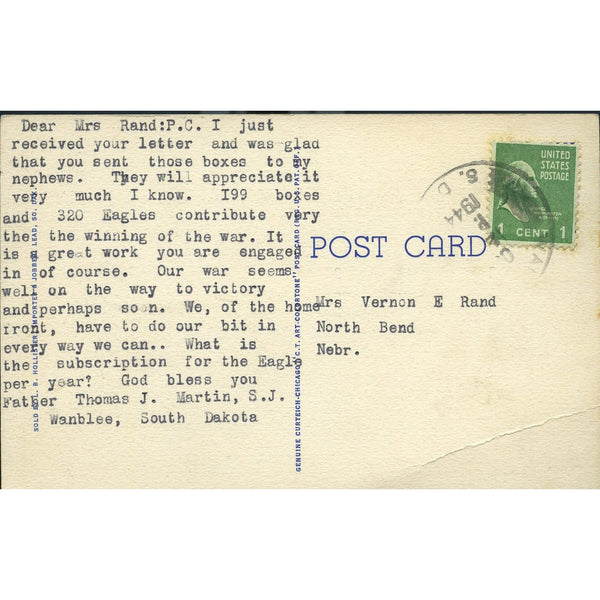 Dear Mrs Rand:P.C. I just
received your letter and was glad
that you sent those boxes to my
nephews. They will appreciate it
very much I know. I99 boxes
and 320 Eagles contribute very
the the winning of the war. It
is a great work you are engaged
in of course. Our war seems
well on the way to victory
and perhaps soon. We, of the home
front, have to do our bit in
every way we can.. What is
the subscription for the Eagle
per year? God bless you
Father Thomas J. Martin, S.J.
Wanblee, South Dakota
POST CARD
Mrs Vernon E Rand
North Bend
Nebr.
UNITED
STATES
POSTAGE
1 CENT 1
1944
S. D.
GENUINE CURTEICH-CHICAGO "C.T. ART-COLORTONE" POST CARD (REG. U.S. PAT. OFF.)